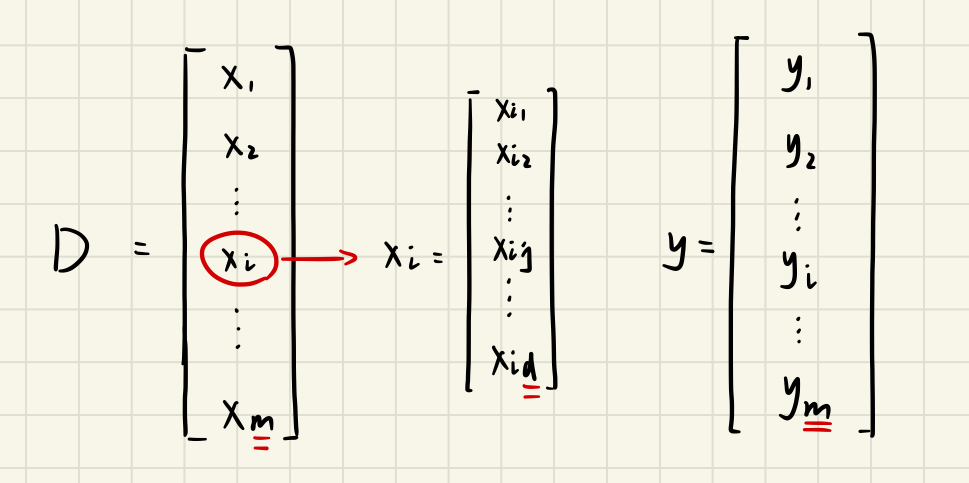 D = [ x₁ x₂ ⋮ xᵢ ⋮ xₘ ] → xᵢ = [ xᵢ₁ xᵢ₂ ⋮ xᵢⱼ ⋮ xᵢd ]
y = [ y₁ y₂ ⋮ yᵢ ⋮ yₘ ]